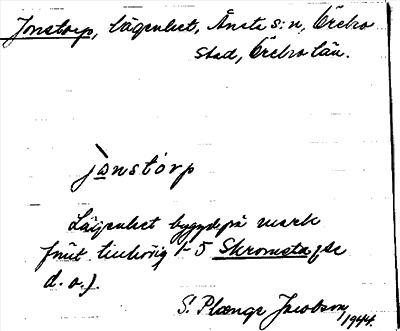 Jonstorp, lägenhet, Ånsta s:n, Örebro
stad, Örebro län.
jònstórp
Lägenhet byggd på mark
förut tillhörig 1-5 Skromsta (se
d. o.).
S. Plænge Jacobson, 1944.